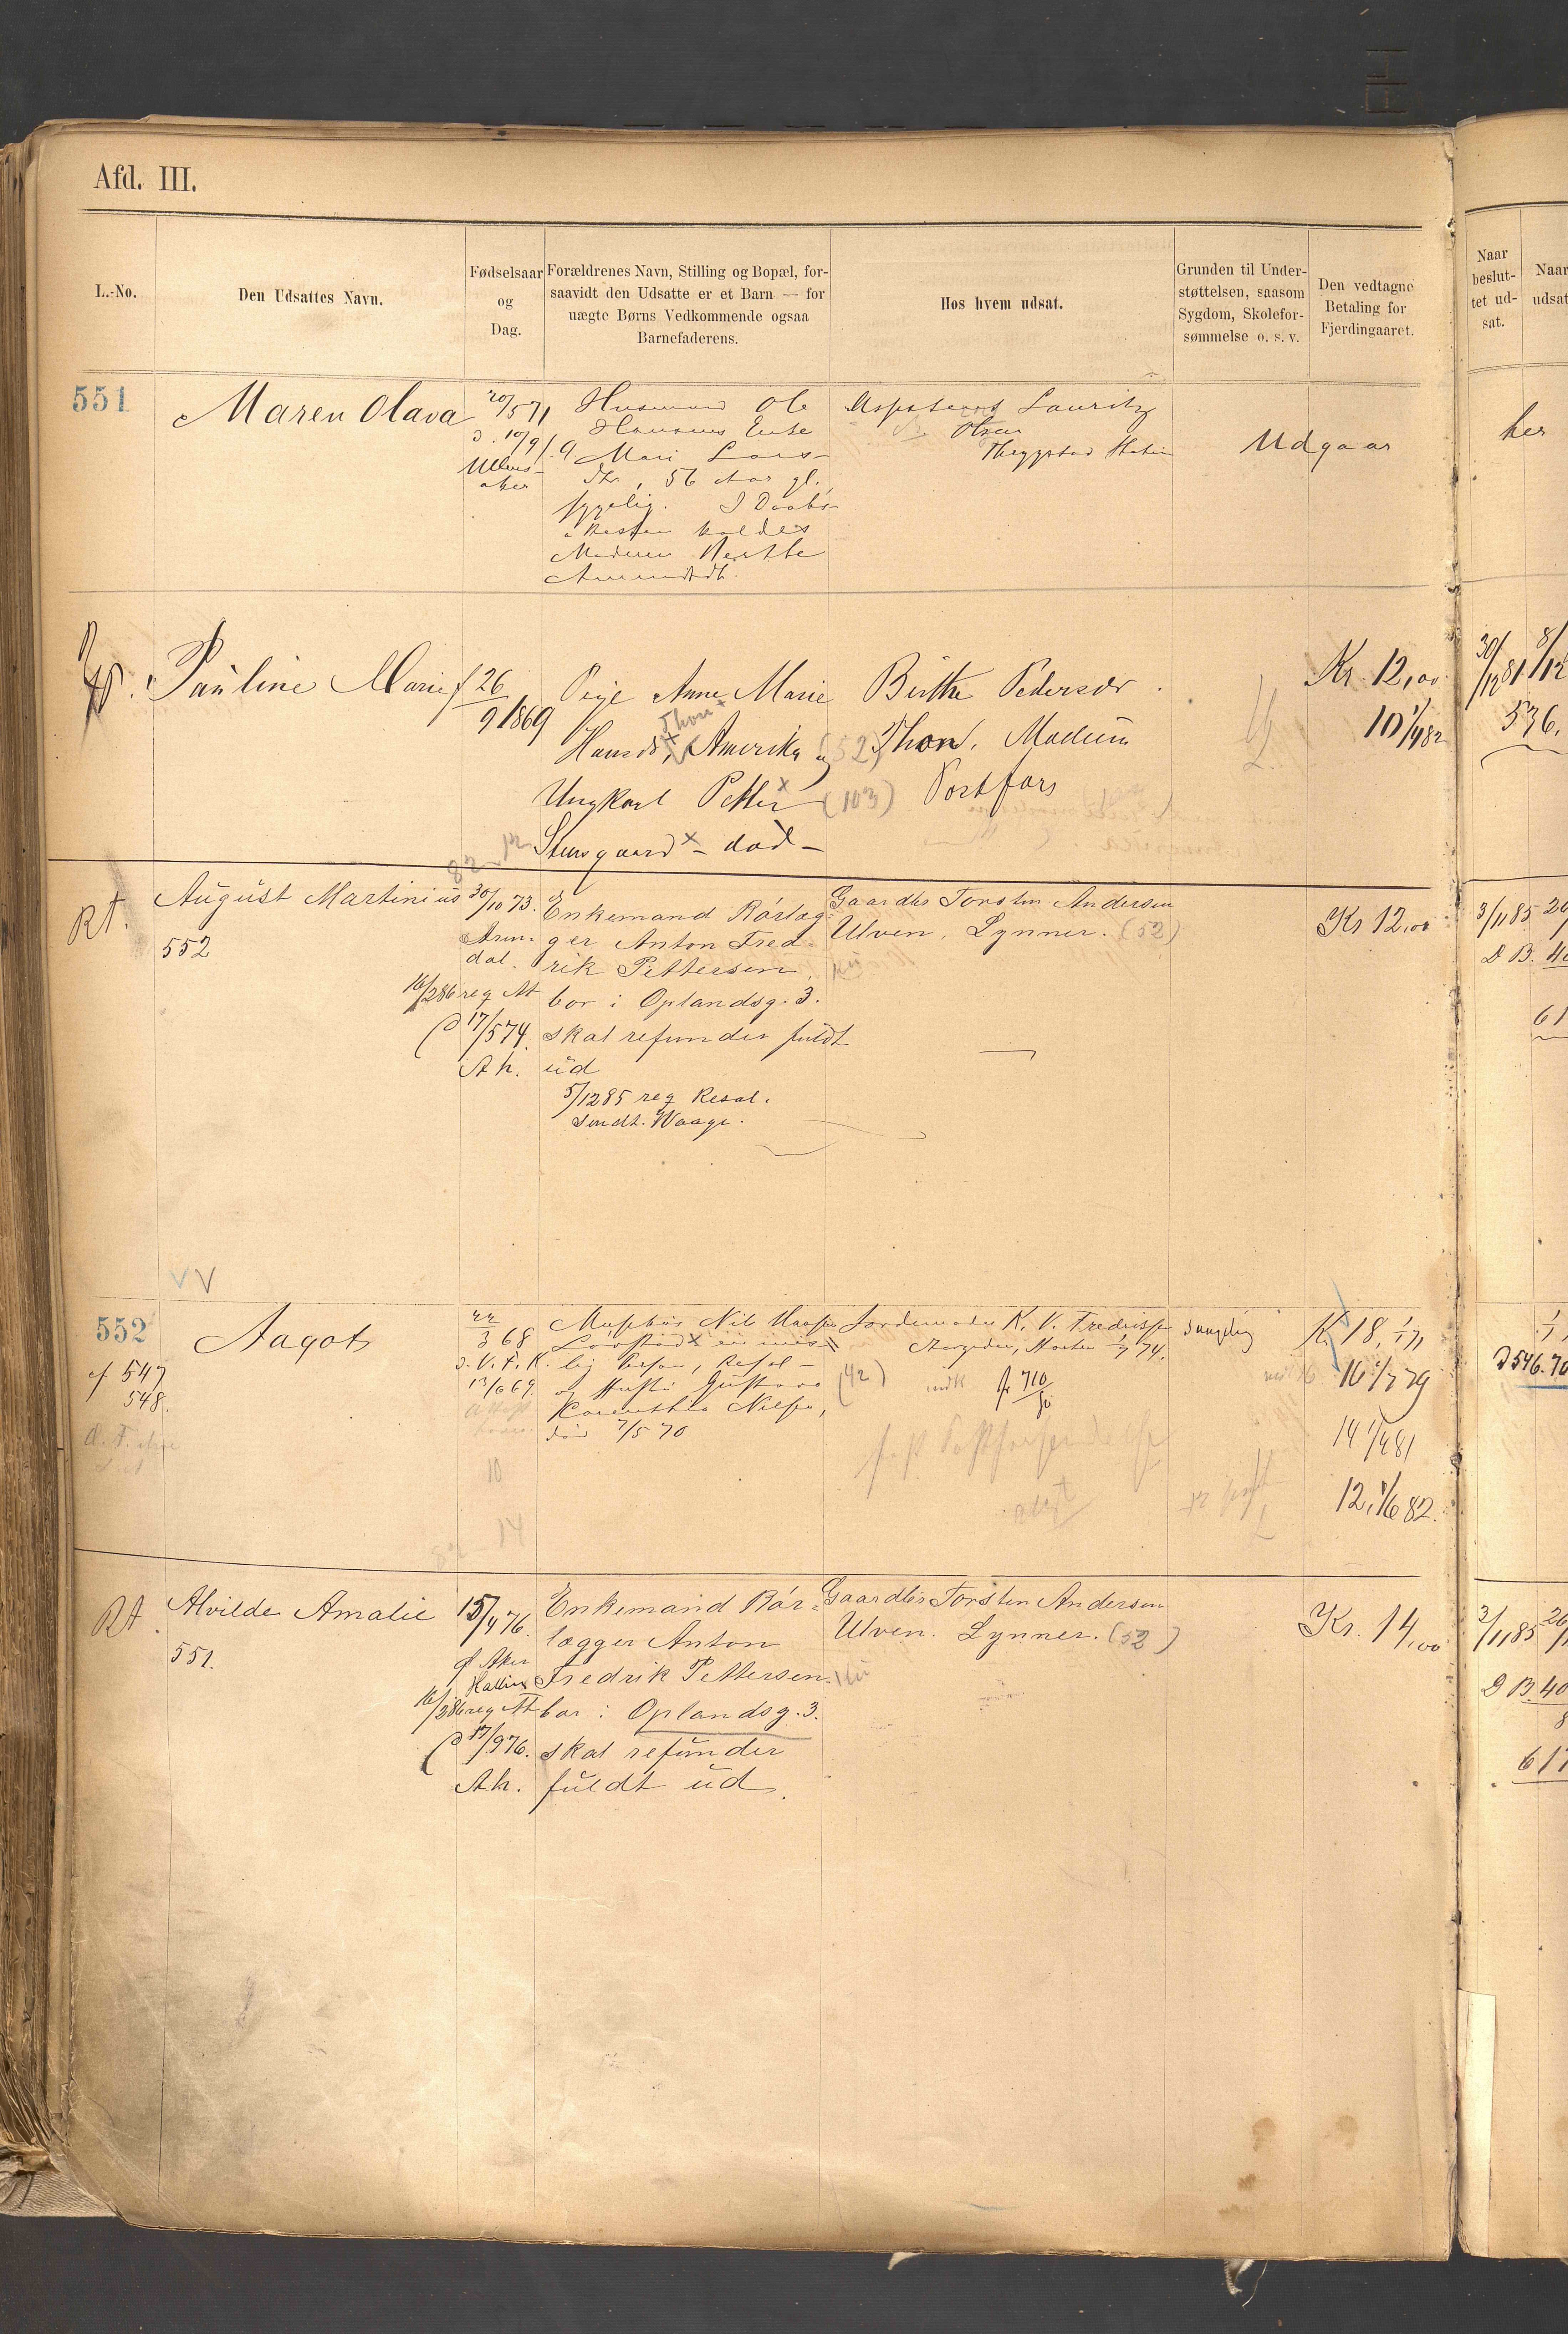 Afd. III.
L.-No.
Den Udsattes Navn.
Fødselsaar
og
Dag.
Forældrenes Navn, Stilling og Bopæl, for-
saavidt den Udsatte er et Barn — for
uægte Børns Vedkommende ogsaa
Barnefaderens.
Hos hvem udsat.
Grunden til Under-
støttelsen, saasom
Sygdom, Skolefor-
sømmelse o. s. v.
Den vedtagne
Betaling for
Fjerdingaaret.
Naar
beslut-
tet ud-
sat.
Naar
udsat
551
Maren Olava
20/5 71
d. 10/9 71
Ullens-
aker
Husmand Ole
Hansens Enke
Mari Lars-
Dtr, 56 Aar gl.,
sygelig. I Daabs-
attesten kaldes
Moderen Berthe
Amundsdt.
Lauritz
Olsen
Udgaar
her
Pauline Marie
26
9 1869
Pige Anne Marie
Thon
Hansdt, Amerika (52)
Ungkarl Petter (103)
Steinsgaard - død -
Birthe Pedersdr.
Thon. Modum
Portfors
Kr. 12,00
10 1/4 82
30/12 81
8/12
536.
82 12
Rt.
August Martinius
552
30/10 73.
Aren-
dal.
16/2 86 reg At
17/5 74.
Ah.
Enkemand Rörlæg-
ger Anton Fred-
rik Pettersen
bor i Oplandsg. 3.
skal refunder fuldt
ud
5/12 85 reg Resol.
Sendt. Waage.
Gaardbr Torsten Andersen
Ulven, Lynner. (52)
Kr 12,00
3/11 85
D B. 40
61
V V
552
cf 547
548.
Aagot
22
3 68
d. V. F. K.
13/6 69.
10
14
Nils
og Hustru Gustava
Nilsen,
død 7/5 70
Jordemoder K. V. Fredriksen
Horten 1/7 74.
(42)
indk
fr 710
Kr 18, 1/1 71
16 1/7 79
14 1/4 81
12, 1/6 82.
D 546. 70
Rt.
Alvilde Amalie
551.
15/4 76.
f Aker
16/2 86 reg At
17/9 76.
Ah.
Enkemand Rör-
lægger Anton
Fredrik Pettersen
bor i Oplandsg. 3.
skal refunder
fuldt ud.
Gaardbr Torsten Andersen
Ulven. Lynner. (52)
Kr. 14,00
3/11 85
D B. 40
617